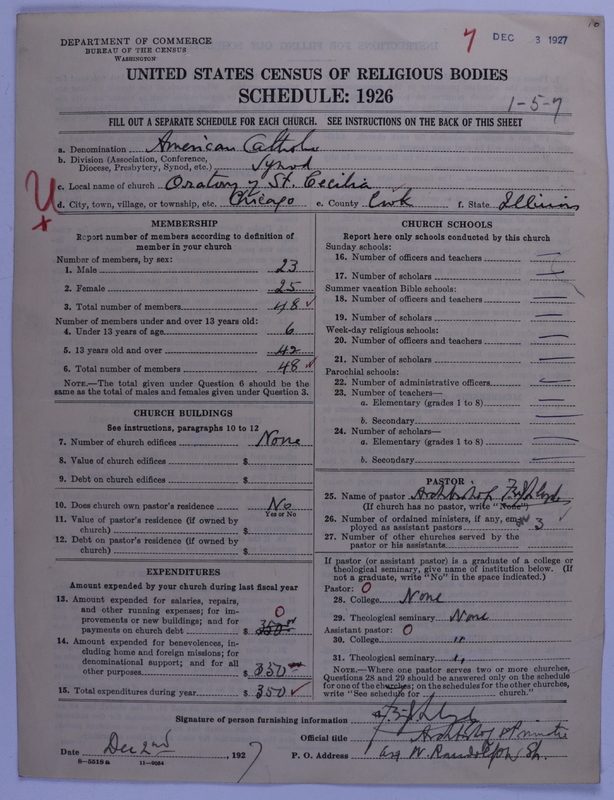 10
7 DEC 3 1927
DEPARTMENT OF COMMERCE
BUREAU OF THE CENSUS
WASHINGTON
UNITED STATES CENSUS OF RELIGIOUS BODIES
SCHEDULE: 1926
1-5-7
FILL OUT A SEPARATE SCHEDULE FOR EACH CHURCH. SEE INSTRUCTIONS ON THE BACK OF THIS SHEET
a. Denomination American Catholic
b. Division (Association, Conference,
Diocese, Presbytery, Synod, etc.) Synod
c. Local name of church Oratory of St. Cecilia
d. City, town, village, or township, etc. Chicago e. County Cook f. State Illinois
MEMBERSHIP
Report number of members according to definition of
member in your church
Number of members, by sex:
1. Male 23
2. Female 25
3. Total number of members 48 ✓
Number of members under and over 13 years old:
4. Under 13 years of age 6
5. 13 years old and over 42
6. Total number of members 48 ✓
NOTE.—The total given under Question 6 should be the
same as the total of males and females given under Question 3.
CHURCH BUILDINGS
See instructions, paragraphs 10 to 12
7. Number of church edifices None
8. Value of church edifices $
9. Debt on church edifices $
10. Does church own pastor's residence No
Yes or No
11. Value of pastor's residence (if owned by
church) $
12. Debt on pastor's residence (if owned by
church) $
EXPENDITURES
Amount expended by your church during last fiscal year
13. Amount expended for salaries, repairs,
and other running expenses; for im-
provements or new buildings; and for 0
payments on church debt $ 350
14. Amount expended for benevolences, in-
cluding home and foreign missions; for
denominational support; and for all
other purposes $ 350
15. Total expenditures during year $ 350 ✓
CHURCH SCHOOLS
Report here only schools conducted by this church
Sunday schools:
16. Number of officers and teachers —
17. Number of scholars —
Summer vacation Bible schools:
18. Number of officers and teachers —
19. Number of scholars —
Week-day religious schools:
20. Number of officers and teachers —
21. Number of scholars —
Parochial schools:
22. Number of administrative officers —
23. Number of teachers—
a. Elementary (grades 1 to 8) —
b. Secondary —
24. Number of scholars—
a. Elementary (grades 1 to 8) —
b. Secondary —
PASTOR
25. Name of pastor Archbishop F. E. J. Lloyd
(If church has no pastor, write "None")
26. Number of ordained ministers, if any, em-
ployed as assistant pastors 3
27. Number of other churches served by the
pastor or his assistants
If pastor (or assistant pastor) is a graduate of a college or
theological seminary, give name of institution below. (If
not a graduate, write "No" in the space indicated.)
Pastor: 0
28. College None
29. Theological seminary None
Assistant pastor: 0
30. College "
31. Theological seminary "
NOTE.—Where one pastor serves two or more churches,
Questions 28 and 29 should be answered only on the schedule
for one of the churches; on the schedules for the other churches,
write "See schedule for church."
Signature of person furnishing information F. E. J. Lloyd
Official title Archbishop & Primate
Date Dec 2nd, 1927 P. O. Address W. Randolph St.
8—5519a 11—9054